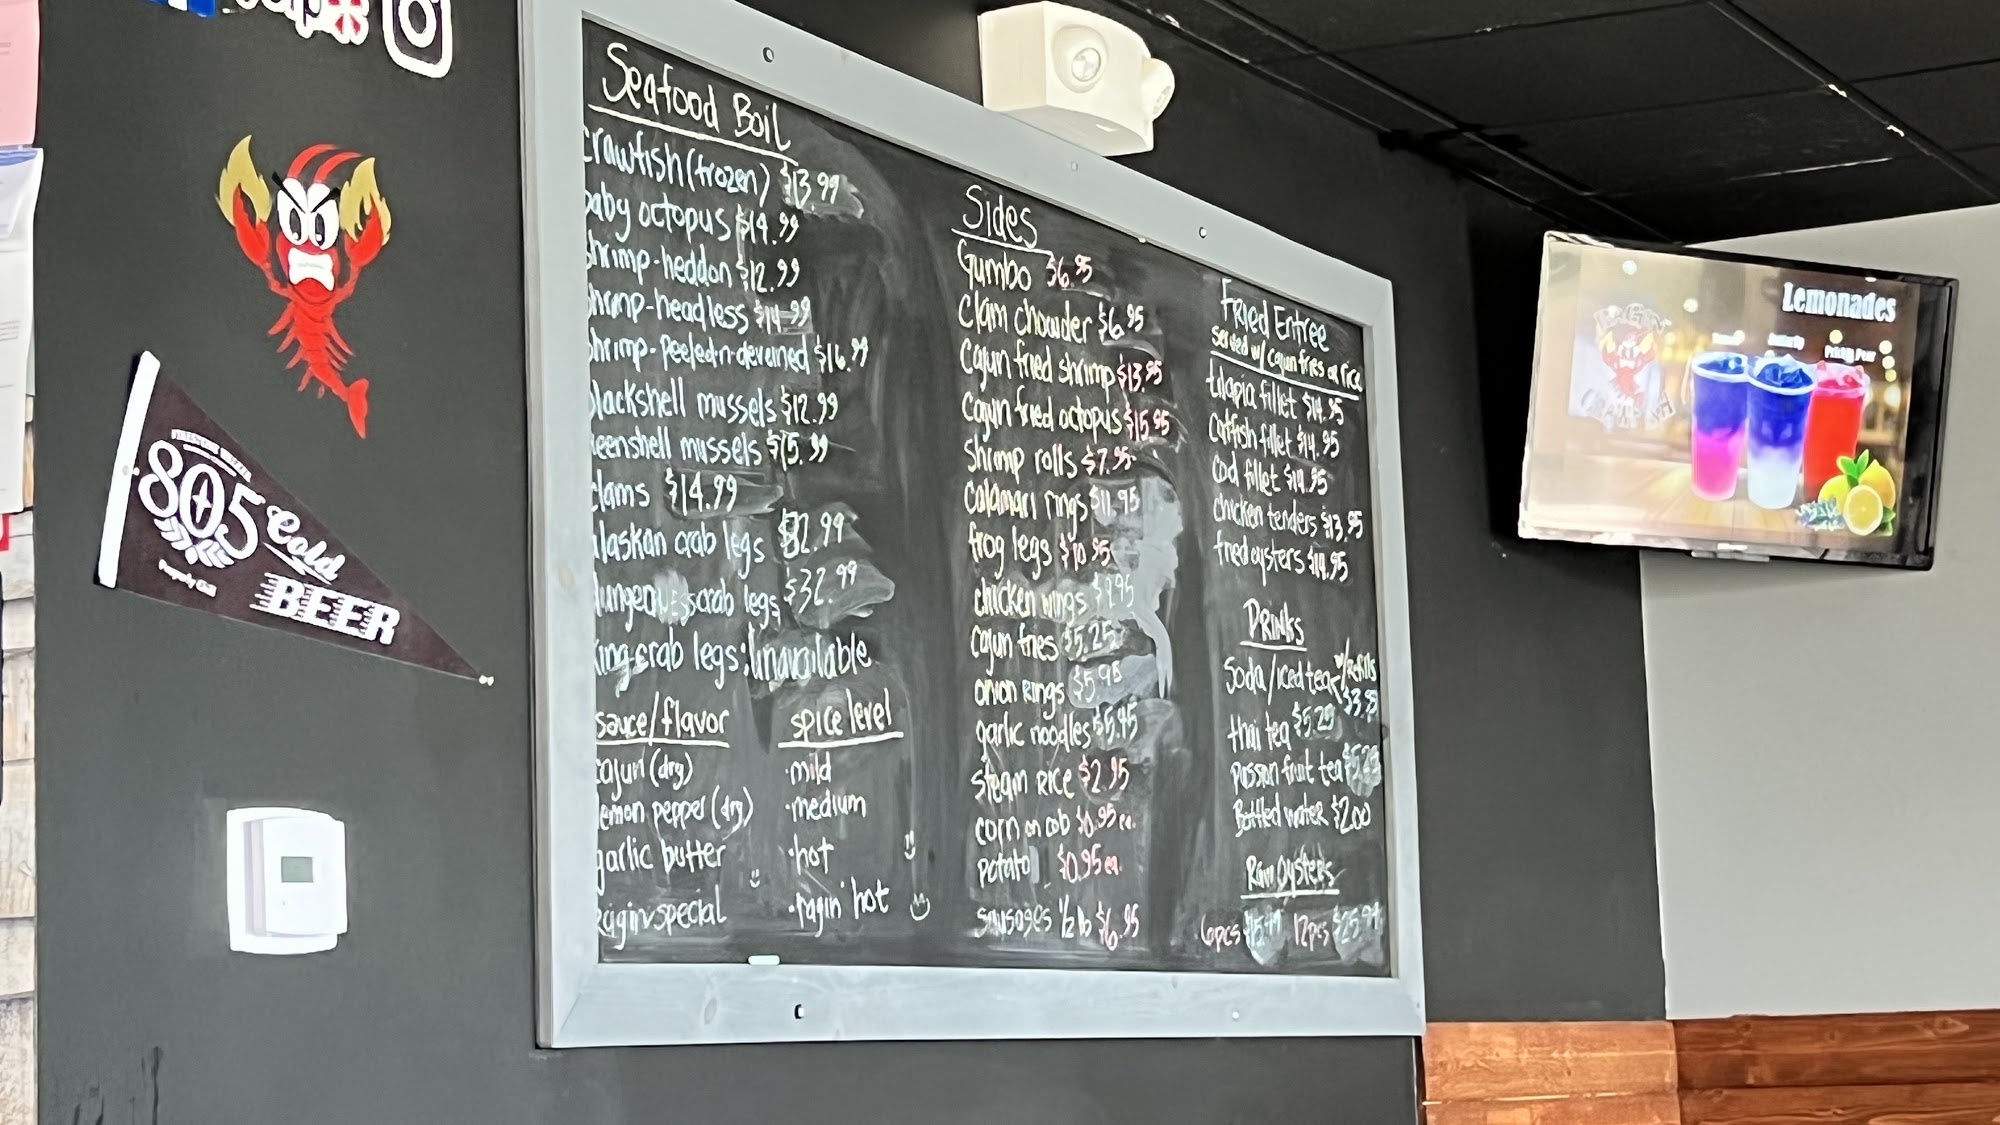 Seafood Boil
crawfish (frozen) $13.99
baby octopus $14.99
shrimp-heddon $12.99
shrimp-headless $14.99
shrimp-peeled-n-deveined $16.99
blackshell mussels $12.99
eenshell mussels $15.99
clams $14.99
alaskan crab legs $32.99
crab legs $32.99
king crab legs: Unavailable
sauce/flavor
cajun (dry)
lemon pepper (dry)
garlic butter
ragin special
spice level
·mild
·medium
·hot
·ragin' hot
Sides
Gumbo $6.95
Clam chowder $6.95
Cajun fried shrimp $13.95
Cajun fried octopus $15.95
Shrimp rolls $7.95
Calamari rings $11.95
frog legs $10.95
chicken wings
cajun fries $5.25
onion rings $5.95
garlic noodles $5.45
steam rice $2.95
corn on cob $0.95 ea.
potato $0.95 ea.
sausages 1/2 lb $6.95
Fried Entree
served w/ cajun fries or rice
tilapia fillet $14.95
Catfish fillet $14.95
Cod fillet $14.95
chicken tenders $13.95
fried oysters $14.95
Drinks
Soda/iced tea w/refills $3.95
thai tea $5.25
passion fruit tea $5.25
Bottled water $2.00
Raw Oysters
6pcs $15.99 12pcs $25.99
805
Cold
BEER
Properly Chill
Lemonades
Prickly Pear